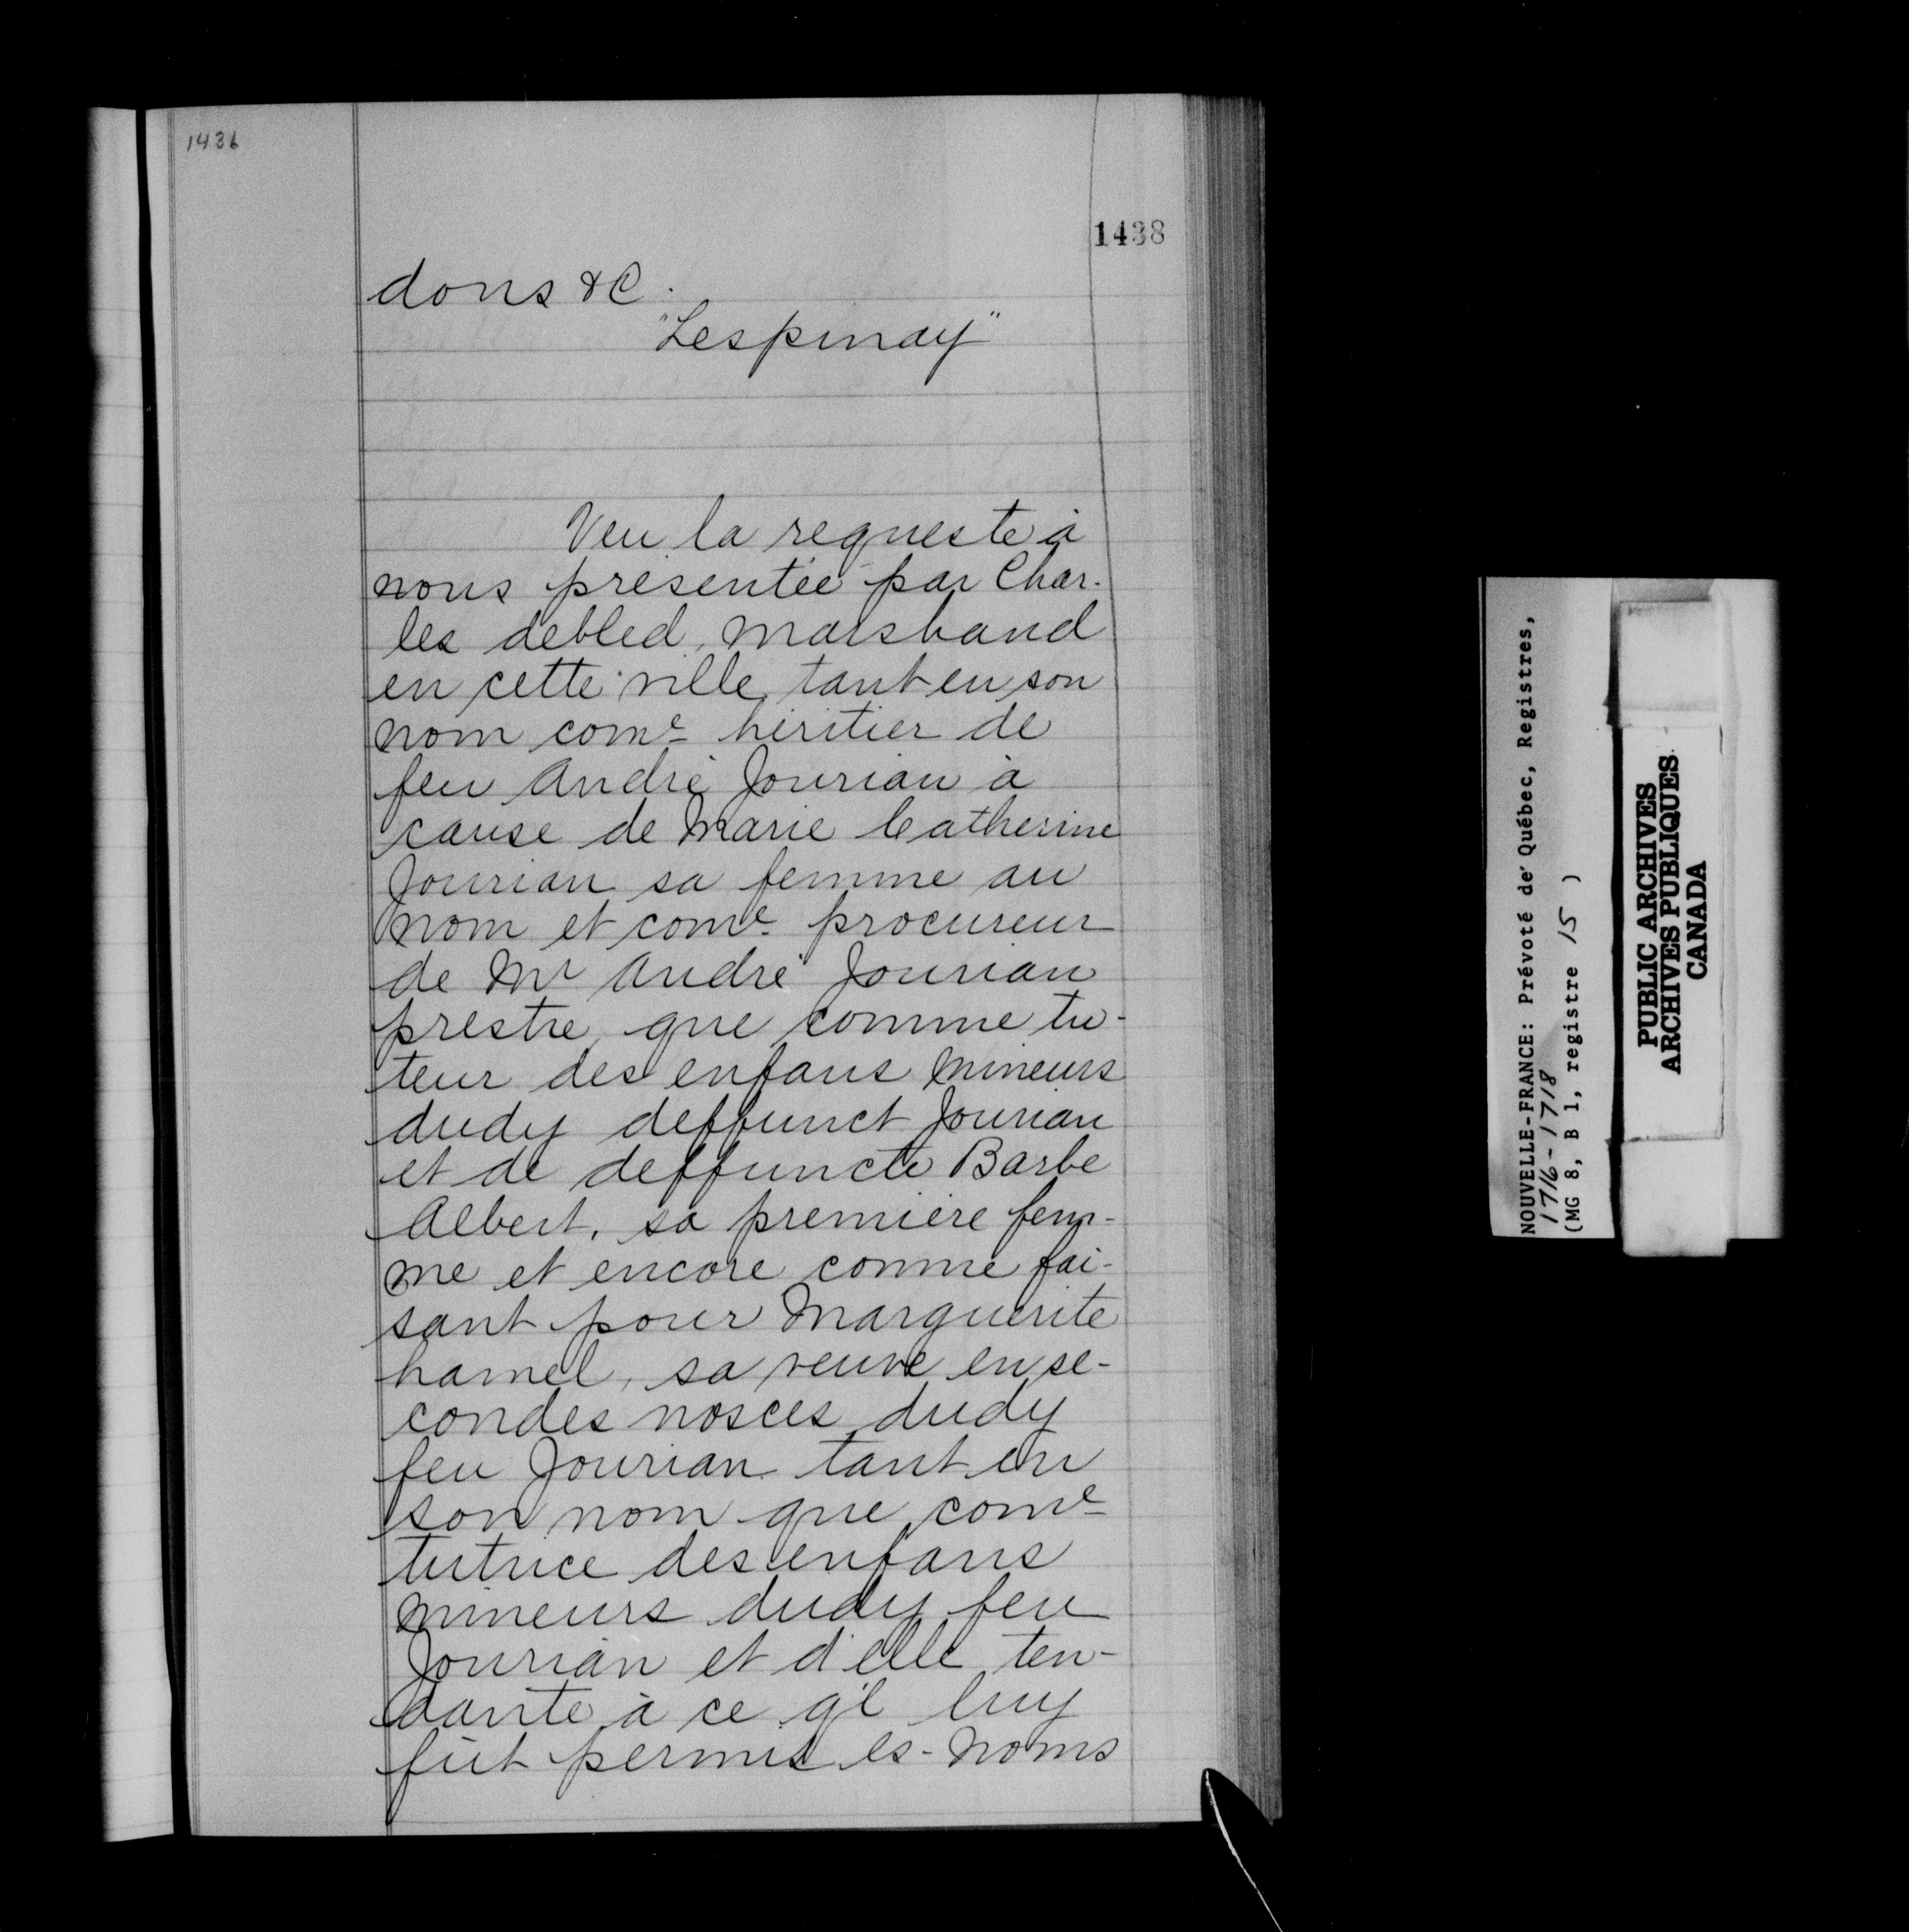 1436
1438
dons &C.
"Lespinay"
Veu la requeste à
nous présentée par Char-
les debled, marshand
en cette ville, tant en son
nom come héritier de
feu André Jourian à
cause de Marie Catherine
Jourian sa femme au
nom et come procureur
de Mr André Jourian
prestre, que comme tu-
teur des enfans mineurs
dudy deffunct Jourian
et de deffuncte Barbe
Albert, sa première fem-
me et encore comme fai-
sant pour Marguerite
hamel, sa veuve en se-
condes nosces dudy
feu Jourian tant en
son nom que come
tutrice des enfans
mineurs dudy feu
Jourian et d'elle ten-
dante à ce q'l luy
fût permis es-noms
NOUVELLE-FRANCE: Prévoté de Québec, Registres,
1716-1718
(MG 8, B 1, registre 15 )
PUBLIC ARCHIVES
ARCHIVES PUBLIQUES
CANADA